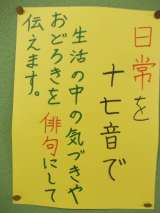 日常を
十七音で
生活の中の気づきや
おどろきを俳句にして
伝えます。